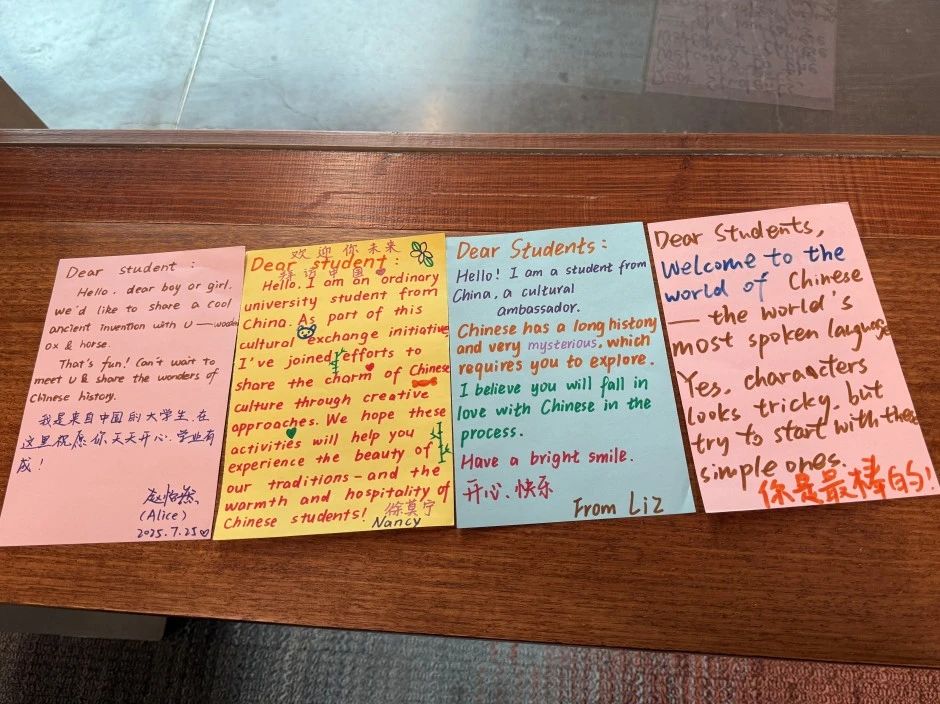 Dear student :
Hello, dear boy or girl.
we'd like to share a cool
ancient invention with U — wooden
ox & horse.
That's fun! Can't wait to
meet U & share the wonders of
Chinese history.
我是来自中国的大学生,在
这里祝愿你天天开心、学业有
成!
赵怡然
(Alice)
2025.7.25♡
欢迎你未来
Dear student:
中国
Hello, I am an ordinary
university student from
China. As part of this
cultural exchange initiative,
I've joined efforts to
share the charm of Chinese
culture through creative
approaches. We hope these
activities will help you
experience the beauty of
our traditions - and the
warmth and hospitality of
Chinese students!
徐莫宁
Nancy
Dear Students:
Hello! I am a student from
China, a cultural
ambassador.
Chinese has a long history
and very mysterious, which
requires you to explore.
I believe you will fall in
love with Chinese in the
process.
Have a bright smile.
开心、快乐
From Liz
Dear Students,
Welcome to the
world of Chinese
— the world's
most spoken language
Yes, characters
looks tricky, but
try to start with these
simple ones.
你是最棒的!